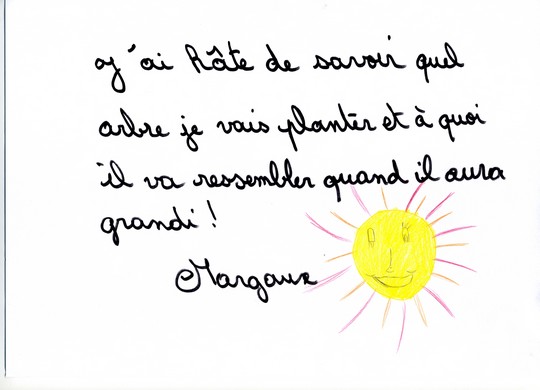 J'ai hâte de savoir quel
arbre je vais planter et à quoi
il va ressembler quand il aura
grandi !
Margaux